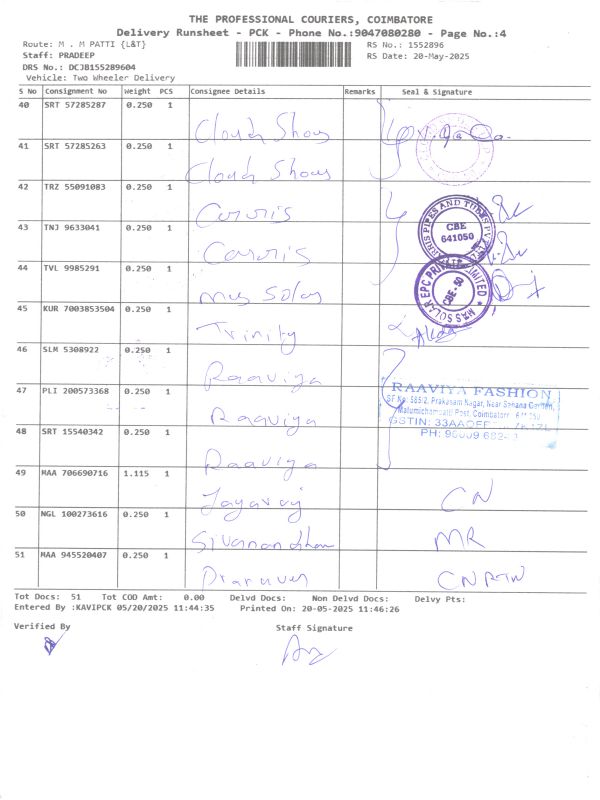 THE PROFESSIONAL COURIERS, COIMBATORE
Delivery Runsheet - PCK - Phone No.:9047080280 - Page No.:4
Route: M . M PATTI {L&T} RS No.: 1552896
Staff: PRADEEP RS Date: 20-May-2025
DRS No.: DCJB155289604
Vehicle: Two Wheeler Delivery
S No Consignment No Weight PCS Consignee Details Remarks Seal & Signature
40 SRT 57285287 0.250 1 Cloudy Show
41 SRT 57285263 0.250 1 Cloudy Show
42 TRZ 55091083 0.250 1
43 TNJ 9633041 0.250 1
CBE
641050
44 TVL 9985291 0.250 1 Mas Solar
MAS SOLAR EPC PRIVATE LIMITED
CBE-50
45 KUR 7003853504 0.250 1 Trinity
46 SLM 5308922 0.250 1 Raaviya
47 PLI 200573368 0.250 1 Raaviya
RAAVIYA FASHION
SF No: 585/2, Prakasam Nagar, Near Sahana Garden,
Malumichampatti Post, Coimbatore
GSTIN: 33AAOFF
48 SRT 15540342 0.250 1 Raaviya
49 MAA 706690716 1.115 1 Jayarvj CN
50 NGL 100273616 0.250 1 Sivanandham MR
51 MAA 945520407 0.250 1 CN
Tot Docs: 51 Tot COD Amt: 0.00 Delvd Docs: Non Delvd Docs: Delvy Pts:
Entered By :KAVIPCK 05/20/2025 11:44:35 Printed On: 20-05-2025 11:46:26
Verified By Staff Signature